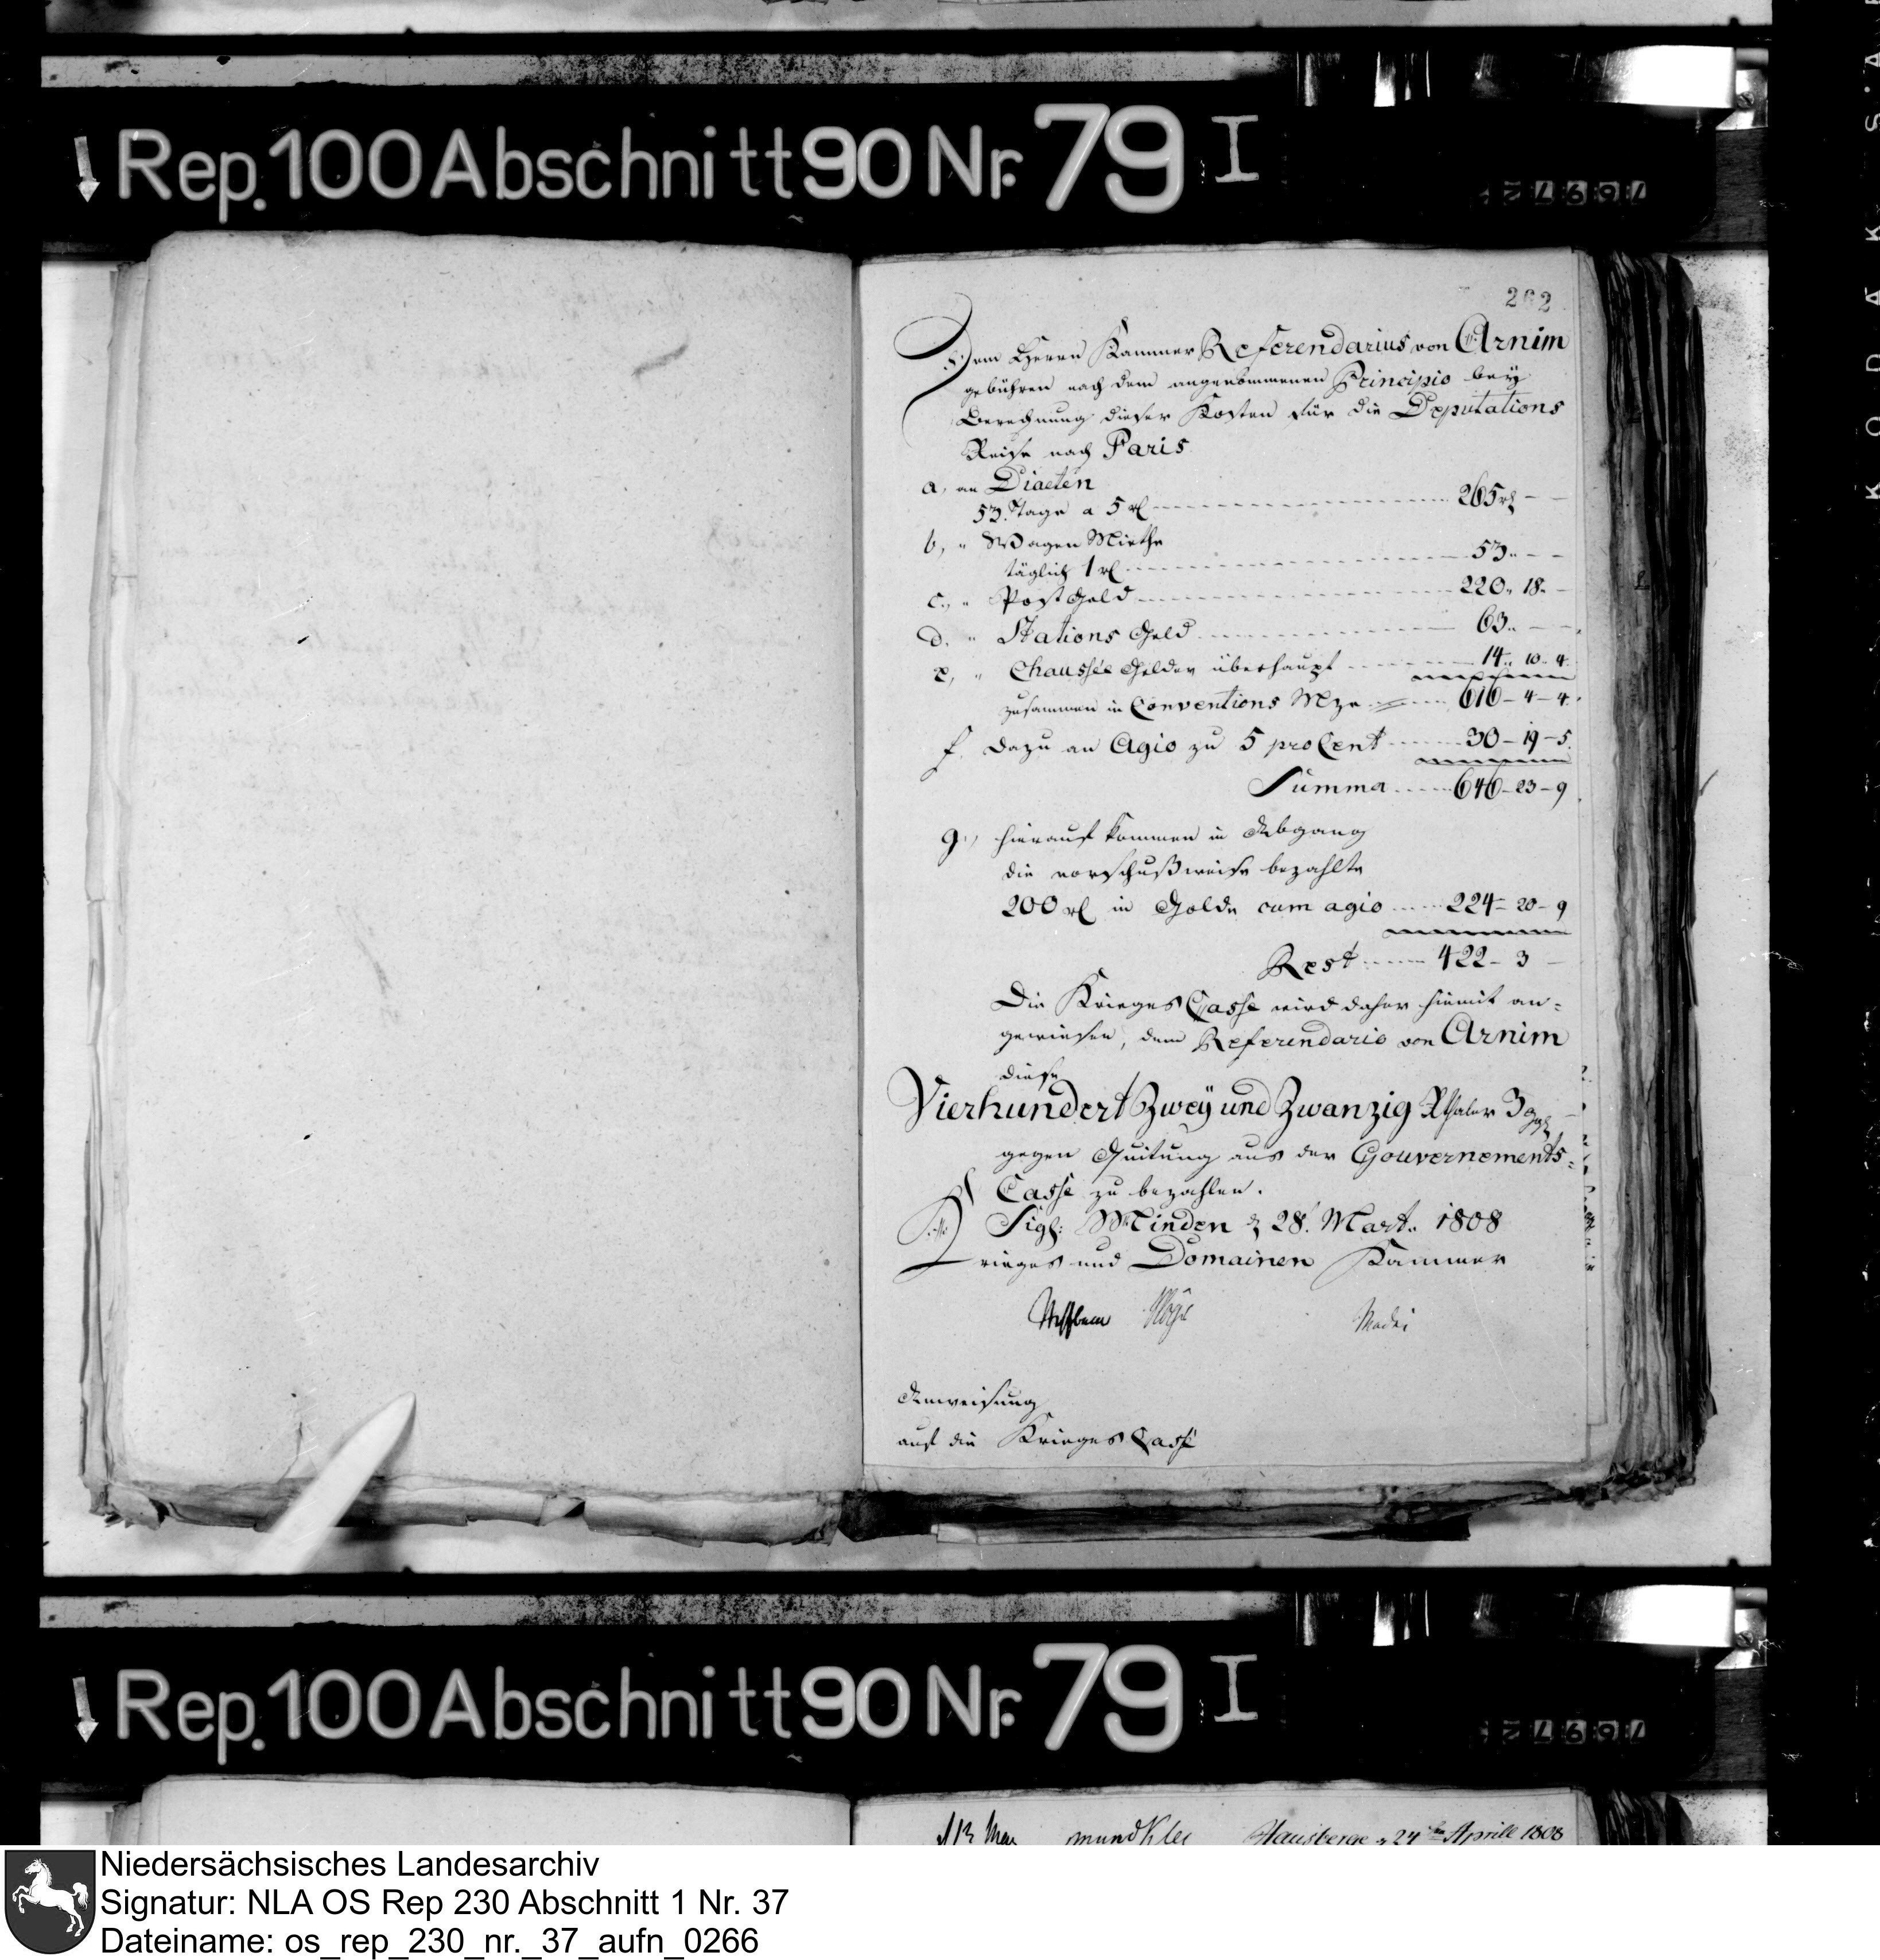 Rep. 100 Abschnitt 90 Nr. 79 I
262
Dem Herrn Kammer Referendarius von Arnim
gebühren nach dem angenommenen Principio bey
Berechnung dieser Kosten für die Deputations
Reise nach Paris
a, an Diaeten
53. Tage a 5 rl 265 rl – –
b, " Wagen Miethe
täglich 1 rl 53 " – –
c, " Post Geld 220 " 18 " –
d. " Stations Geld 63 " – –
e, " Chaussée Gelder überhaupt 14 " 10 " 4
zusammen in Conventions Mze 616 – 4 – 4
f. dazu an Agio zu 5 pro Cent 30 – 19 – 5
Summa 646 – 23 – 9
g, hierauf kommen in Abgang
die vorschußweise bezahlte
200 rl in Golde cum agio 224 – 20 – 9
Rest 422 – 3 –
Die Krieges Casse wird daher hiemit an=
gewiesen, dem Referendario von Arnim
diese
Vierhundert Zwey und Zwanzig Rthaler 3 ggl
gegen Quitung aus der Gouvernements=
Casse zu bezahlen.
Sigl: Minden d 28. Mart. 1808
Krieges und Domainen Kammer
Madei
Anweisung
auf die Krieges Casse
Rep. 100 Abschnitt 90 Nr. 79 I
Hausberge d 24 ten Aprill 1808
KODAK SA
Niedersächsisches Landesarchiv
Signatur: NLA OS Rep 230 Abschnitt 1 Nr. 37
Dateiname: os_rep_230_nr._37_aufn_0266